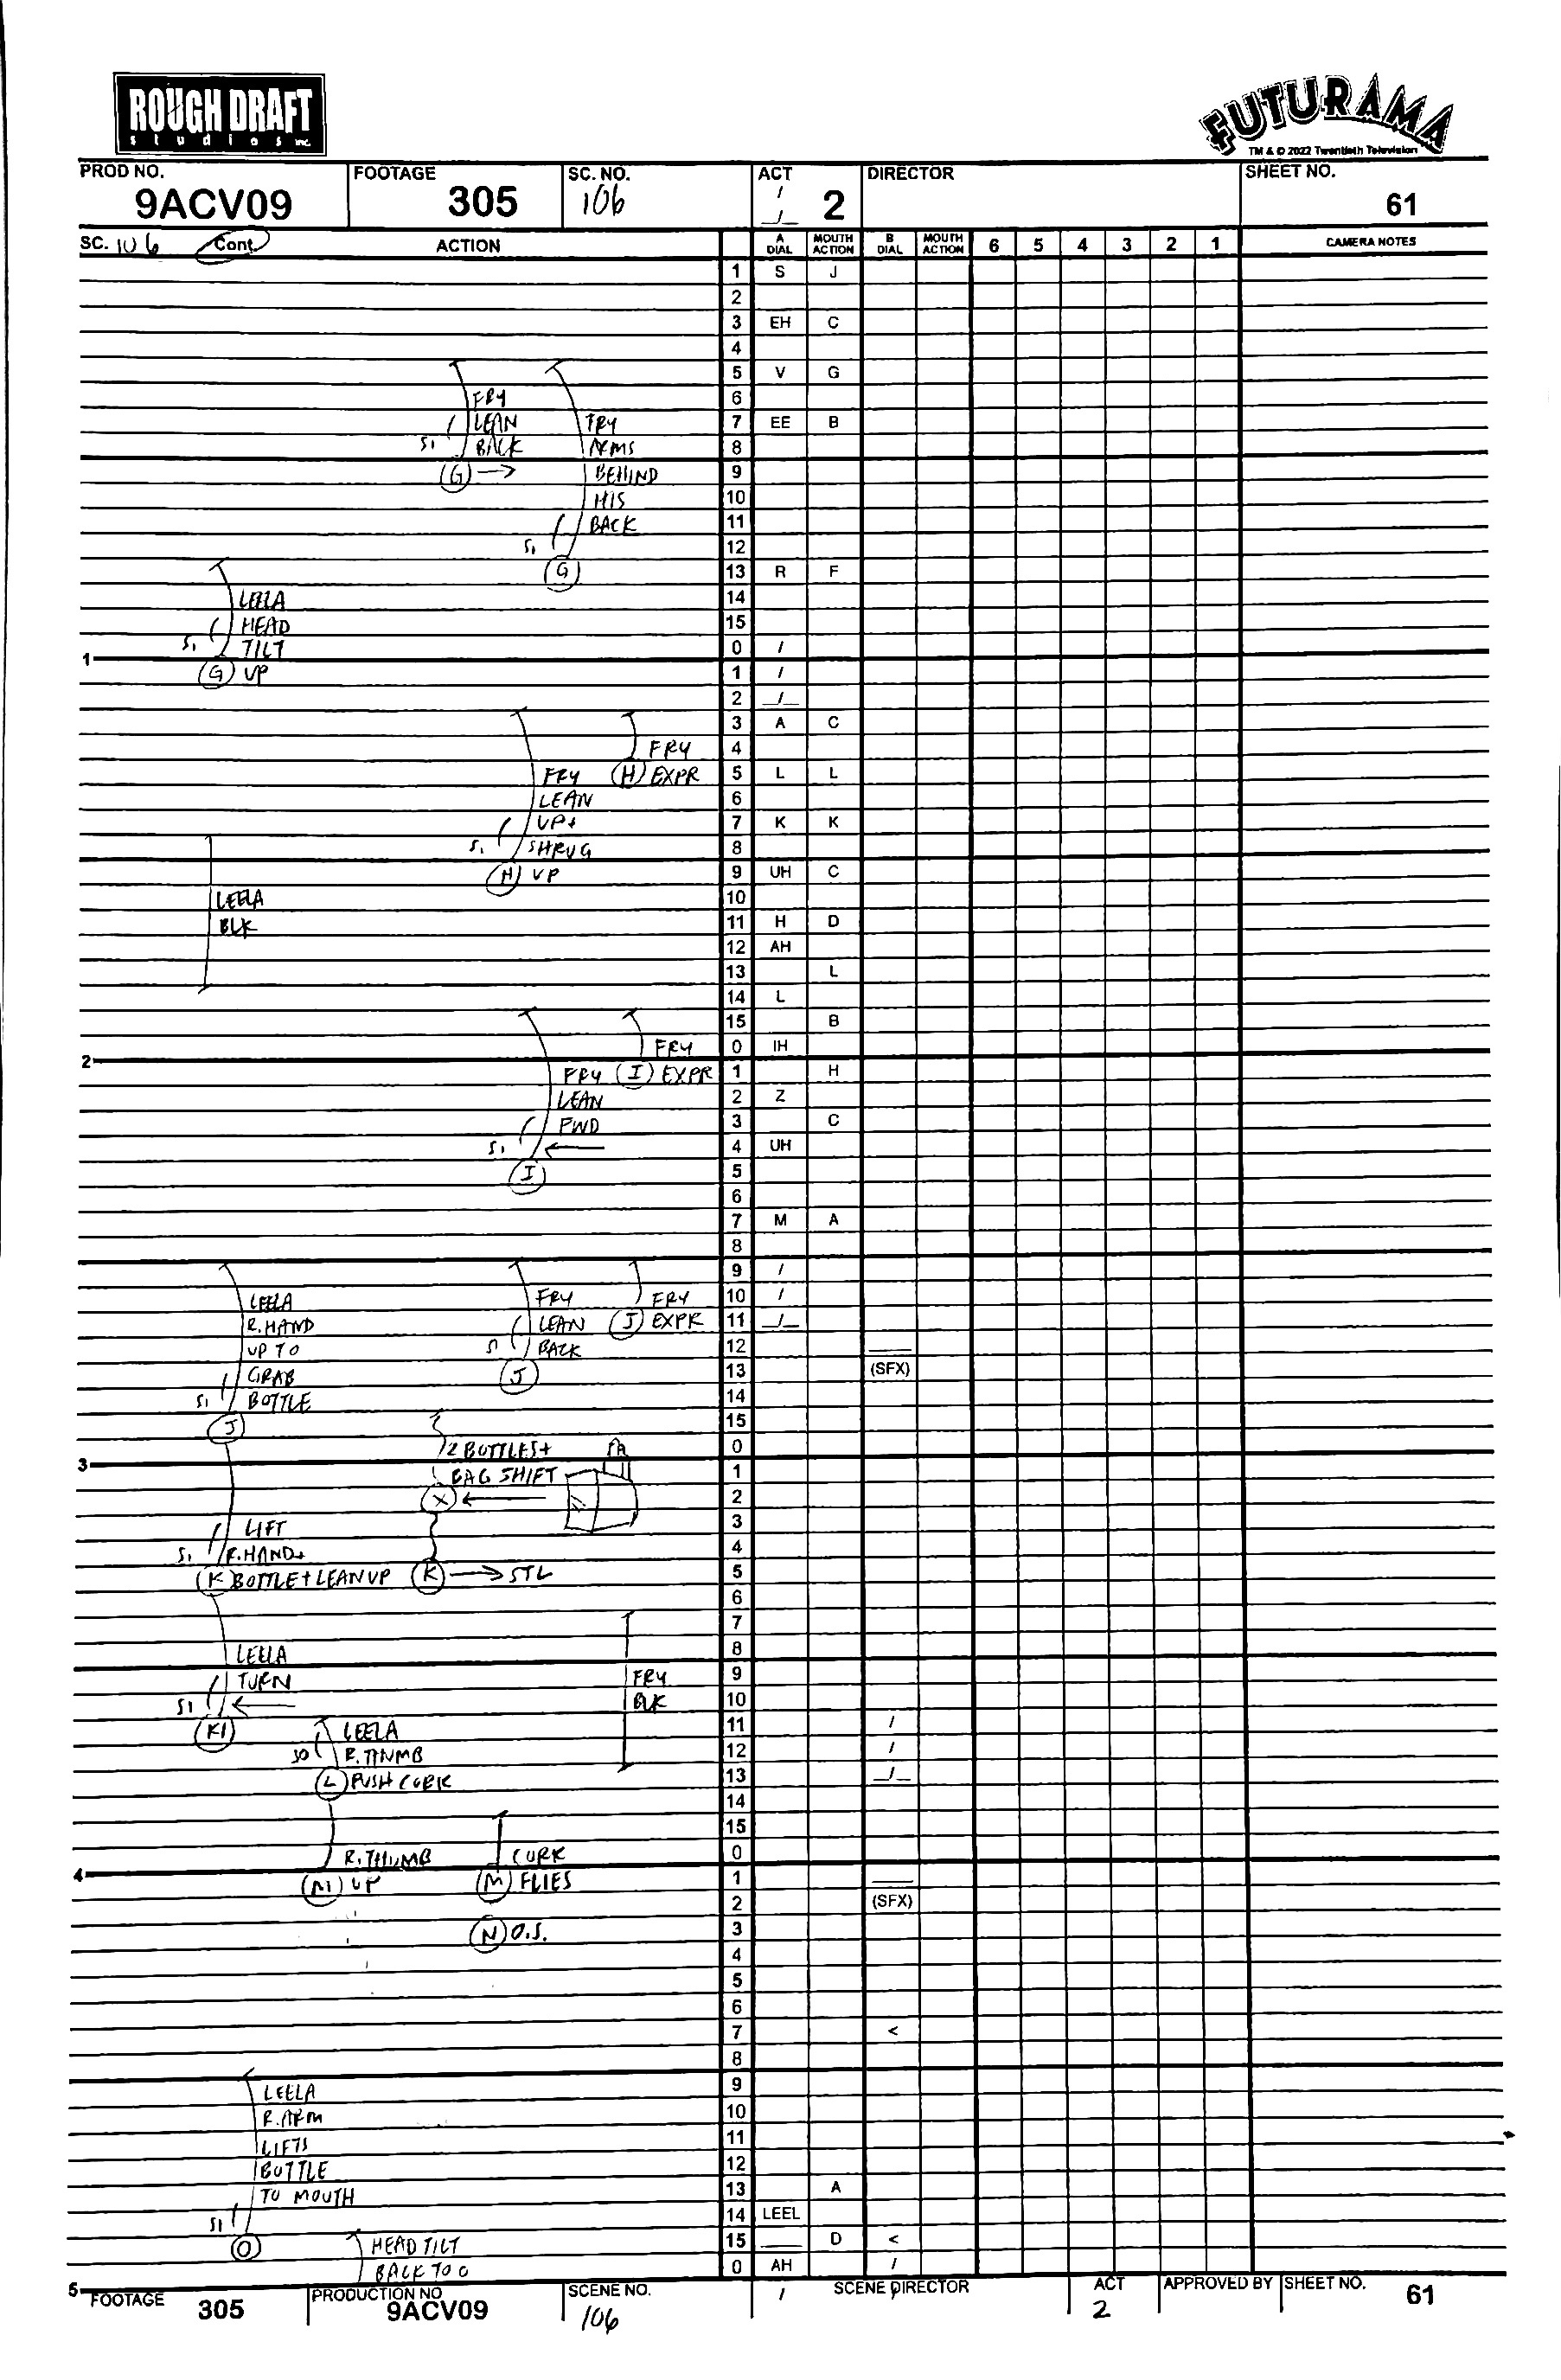 ROUGH DRAFT
studios inc.
FUTURAMA
TM & © 2022 Twentieth Television
PROD NO. 9ACV09
FOOTAGE 305
SC. NO. 106
ACT 2
DIRECTOR
SHEET NO. 61
SC. 106 Cont.
ACTION
A DIAL
MOUTH ACTION
B DIAL
MOUTH ACTION
6 5 4 3 2 1
CAMERA NOTES
1 S J
2
3 EH C
4
5 V G
FRY 6
LEAN FRY 7 EE B
S1 BACK ARMS 8
G → BEHIND 9
HIS 10
BACK 11
S1 12
G 13 R F
LEELA 14
HEAD 15
S1 TILT 0 /
1
G UP 1 /
2 /
3 A C
FRY 4
FRY H EXPR 5 L L
LEAN 6
UP+ 7 K K
S1 SHRUG 8
H UP 9 UH C
LEELA 10
BLK 11 H D
12 AH
13 L
14 L
15 B
FRY 0 IH
2
FRY I EXPR 1 H
LEAN 2 Z
FWD 3 C
S1 ← 4 UH
I 5
6
7 M A
8
9 /
LEELA FRY FRY 10 /
R.HAND LEAN J EXPR 11 /
UP TO BACK 12
GRAB J 13 (SFX)
S1 BOTTLE 14
J 15
2 BOTTLES+ 0
3
BAG SHIFT 1
X ← 2
LIFT 3
S1 R.HAND+ 4
K BOTTLE+LEAN UP K → STL 5
6
7
LEELA 8
TURN FRY 9
S1 ← BLK 10
K1 LEELA 11 /
R.THUMB 12 /
L PUSH CORK 13 /
14
15
R.THUMB CORK 0
4
M UP M FLIES 1
2 (SFX)
N O.S. 3
4
5
6
7 <
8
LEELA 9
R.ARM 10
LIFTS 11
BOTTLE 12
TO MOUTH 13 A
S1 14 LEEL
O HEAD TILT 15 D <
BACK TO O 0 AH /
5
FOOTAGE 305
PRODUCTION NO 9ACV09
SCENE NO. 106
/
SCENE DIRECTOR
ACT 2
APPROVED BY
SHEET NO. 61